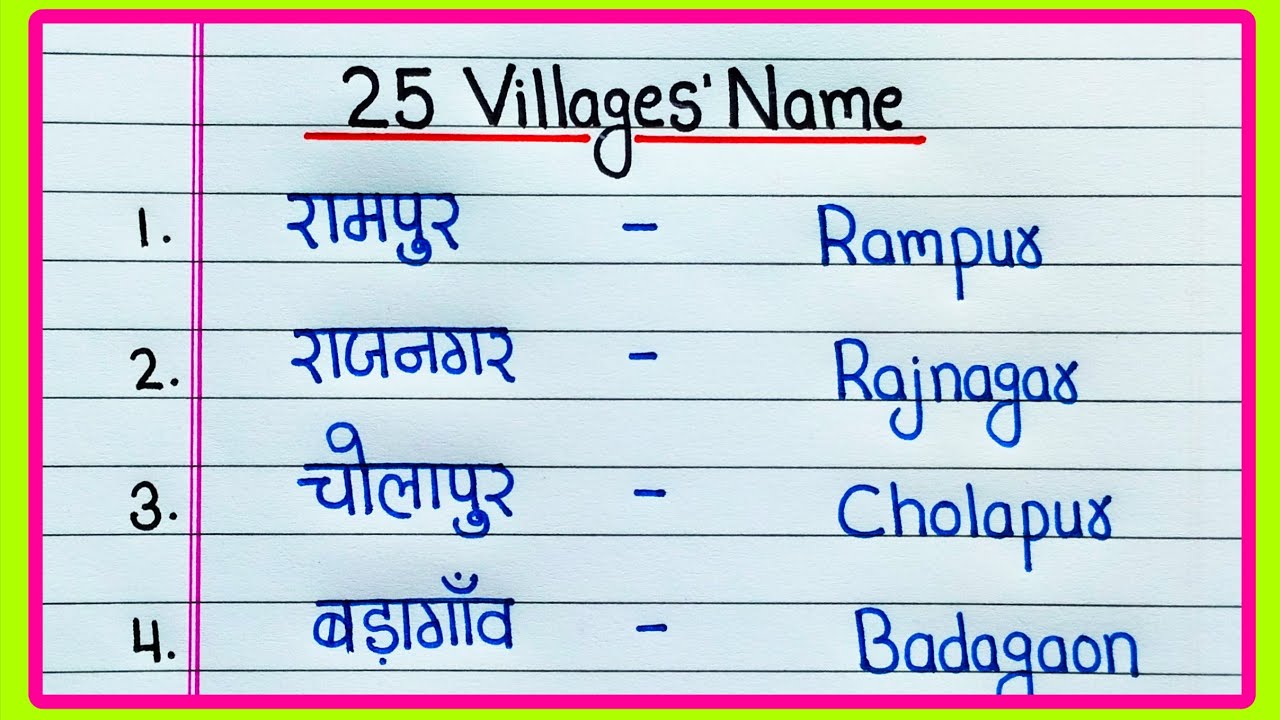 25 Villages' Name
1. रामपुर - Rampur
2. राजनगर - Rajnagar
3. चोलापुर - Cholapur
4. बड़ागाँव - Badagaon